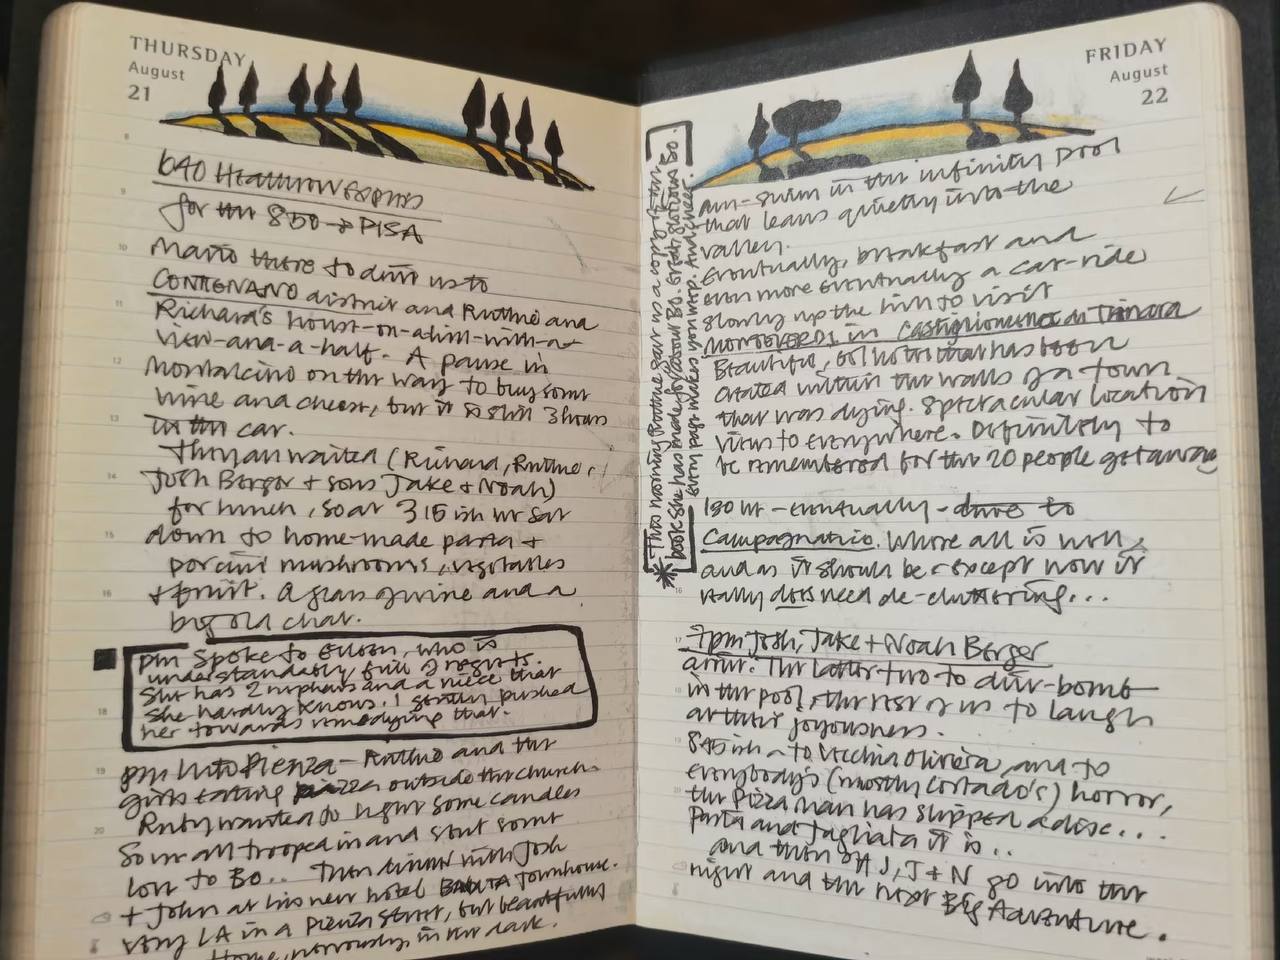 THURSDAY
August
21
8
640 Heathrow Express
for the 850 → PISA
9
10
Mario there to drive us to
CONTIGNANO district and Ruthie and
11
Richard's house-on-a-hill-with-a-
view-and-a-half. A pause in
12
Montalcino on the way to buy some
wine and cheese, but it is still 3 hours
13
in the car.
They all waited (Richard, Ruthie,
14
Josh Berger + sons Jake + Noah)
for lunch, so at 315 ish we sat
15
down to home-made pasta +
porcini mushrooms, vegetables
16
+ fruit. A glass of wine and a
big old chat.
pm Spoke to Eileen, who is
understandably full of regrets.
She has 2 nephews and a niece that
18
she hardly knows. I gently pushed
her towards remedying that.
19
pm Into Pienza - Ruthie and the
girls eating pizza outside the church.
20
Ruby wanted to light some candles
So we all trooped in and sent some
love to Bo.. Then dinner with Josh
+ John at his new hotel Townhouse.
very LA in a Pienza street, but beautifully
Home, nervously, in the dark.
FRIDAY
August
22
am - swim in the infinity pool
that leans quietly into the
valley.
Eventually, breakfast and
even more eventually a car-ride
slowly up the hill to visit
MONTEVERDI in Castiglioncello di Trinoro
Beautiful, hotel that has been
created within the walls of a town
that was dying. Spectacular location
views to everywhere. Definitely to
be remembered for the 20 people getaway
130 ish - eventually - drive to
Campagnatico. Where all is well,
and as it should be - except now it
16
really does need de-cluttering...
17
7pm Josh, Jake + Noah Berger
arrive. The latter two to dive-bomb
18
in the pool, the rest of us to laugh
at their joyousness.
19
845 ish - to Vecchia Oliviera, and to
everybody's (mostly Cortado's) horror,
20
the Pizza man has slipped a disc...
Pasta and Tagliata it is..
and then off J, J + N go into the
night and the next Big Adventure.
* This morning Ruthie gave us a copy of the
book she has made for/about Bo. Great, glorious Bo.
every page makes you weep. And cheer.